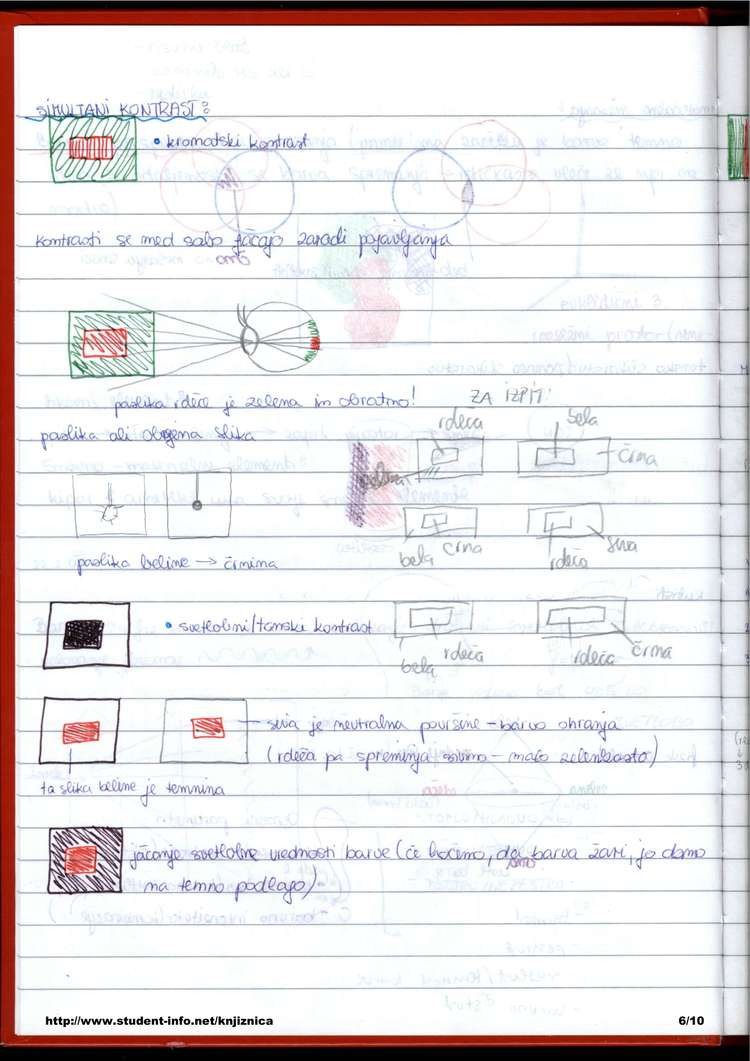 SIMULTANI KONTRAST:
• kromatski kontrast
kontrasti se med sabo jačajo zaradi pojavljanja
paslika rdeče je zelena in obratno!
ZA IZPIT!
paslika ali obogena slika
rdeča
bela
zelena
črna
bela
črna
rdeča
siva
paslika beline → črnina
• svetlobni/tonski kontrast
bela
rdeča
rdeča
črna
siva je neutralna površina - barvo ohranja
(rdeča pa spreminja sivino - malo zelenkasto)
ta slika beline je temnina
jačanje svetlobne vrednosti barve (če hočemo, da barva žari, jo damo
na temno podlago)
http://www.student-info.net/knjiznica
6/10